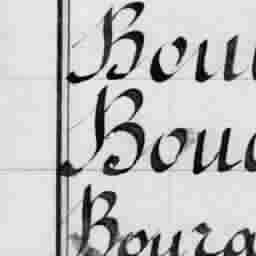 Bou
Bou
Bourg